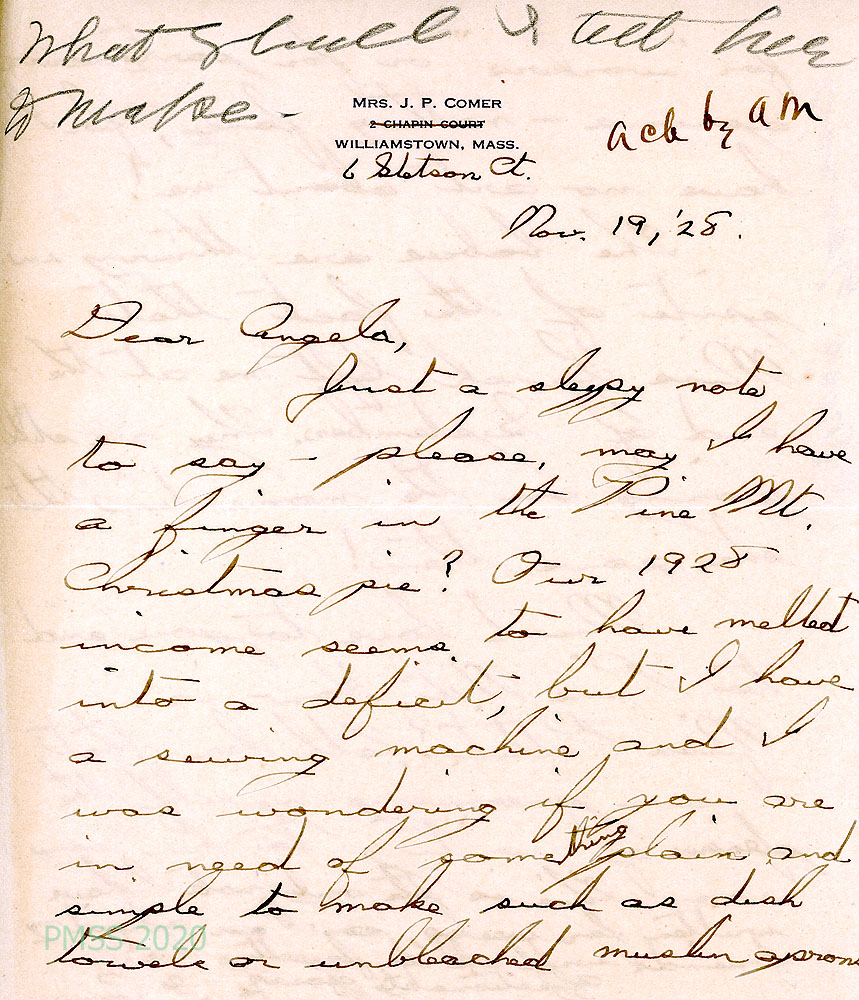 What shall I tell her
to make -
MRS. J. P. COMER
2 CHAPIN COURT
WILLIAMSTOWN, MASS.
6 Stetson Ct.
ack by AM
Nov. 19, '28.
Dear Angela,
Just a sleepy note
to say - please, may I have
a finger in the Pine Mt.
Christmas pie? Our 1928
income seems to have melted
into a deficit, but I have
a sewing machine and I
was wondering if you are
in need of something plain and
simple to make such as dish
towels or unbleached muslin aprons
PMSS 2020